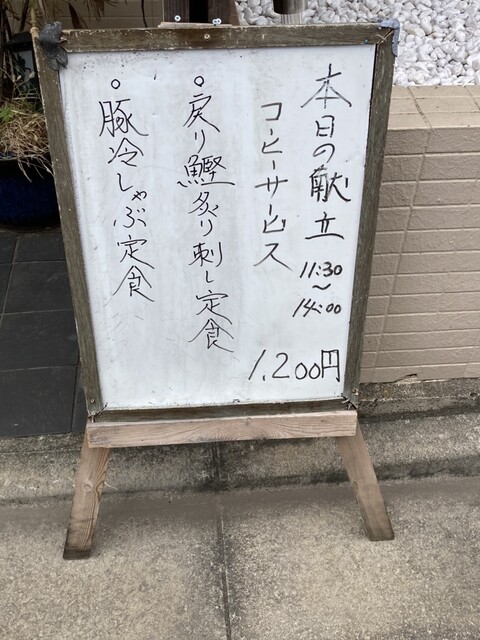 本日の献立
11:30
〜
14:00
コーヒーサービス
1.200円
○戻り鰹炙り刺し定食
○豚冷しゃぶ定食